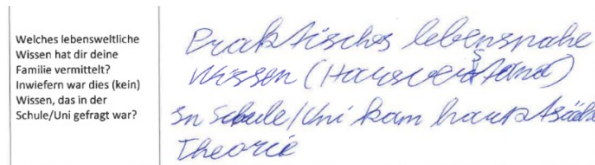 Welches lebensweltliche
Wissen hat dir deine
Familie vermittelt?
Inwiefern war dies (kein)
Wissen, das in der
Schule/Uni gefragt war?
Praktisches lebensnahe
Wissen (Hausverstand)
In Schule/Uni kam hauptsäch
Theorie